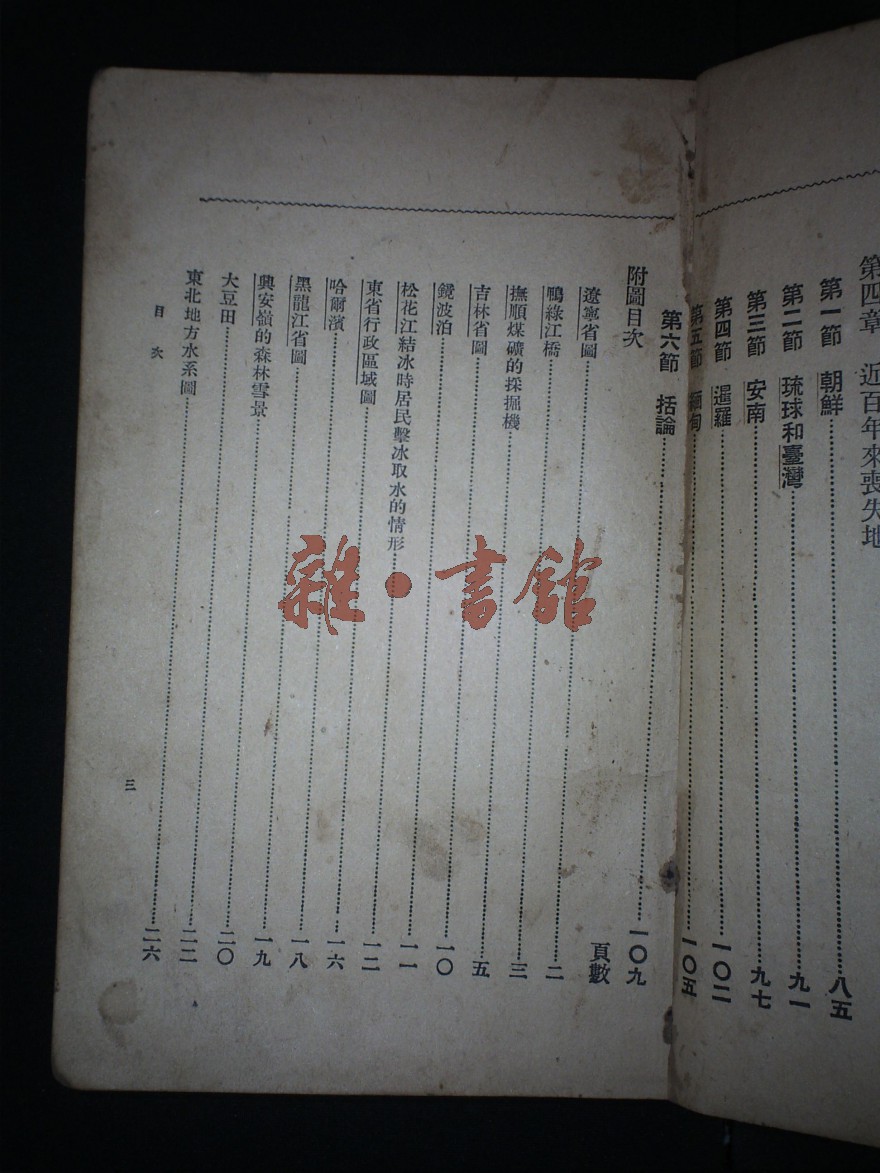 第四章 近百年來喪失地
第一節 朝鮮……八五
第二節 琉球和臺灣……九一
第三節 安南……九七
第四節 暹羅……一〇二
第五節 緬甸……一〇五
第六節 括論……一〇九
附圖目次 頁數
遼寧省圖……二
鴨綠江橋……三
撫順煤礦的採掘機……五
吉林省圖……一〇
鏡波泊……一一
松花江結冰時居民擊冰取水的情形……一二
東省行政區域圖……一六
哈爾濱……一八
黑龍江省圖……一九
興安嶺的森林雪景……二〇
大豆田……二二
東北地方水系圖……二六
目次 三
雜·書館